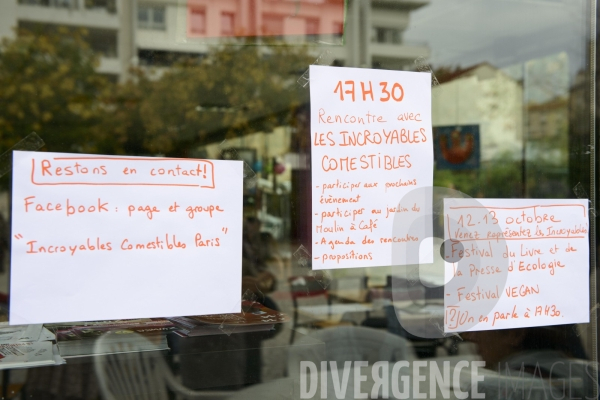 Restons en contact!
Facebook : page et groupe
"Incroyables Comestibles Paris"
17H30
Rencontre avec
LES INCROYABLES
COMESTIBLES
- participer aux prochains
évènement
- participer au jardin du
Moulin à Café
- Agenda des rencontres
- propositions
12.13 octobre
Venez représentez les Incroyables
- Festival du Livre et de
la Presse d'Ecologie
- Festival VEGAN
On en parle à 17H30.
DIVERGENCE IMAGES